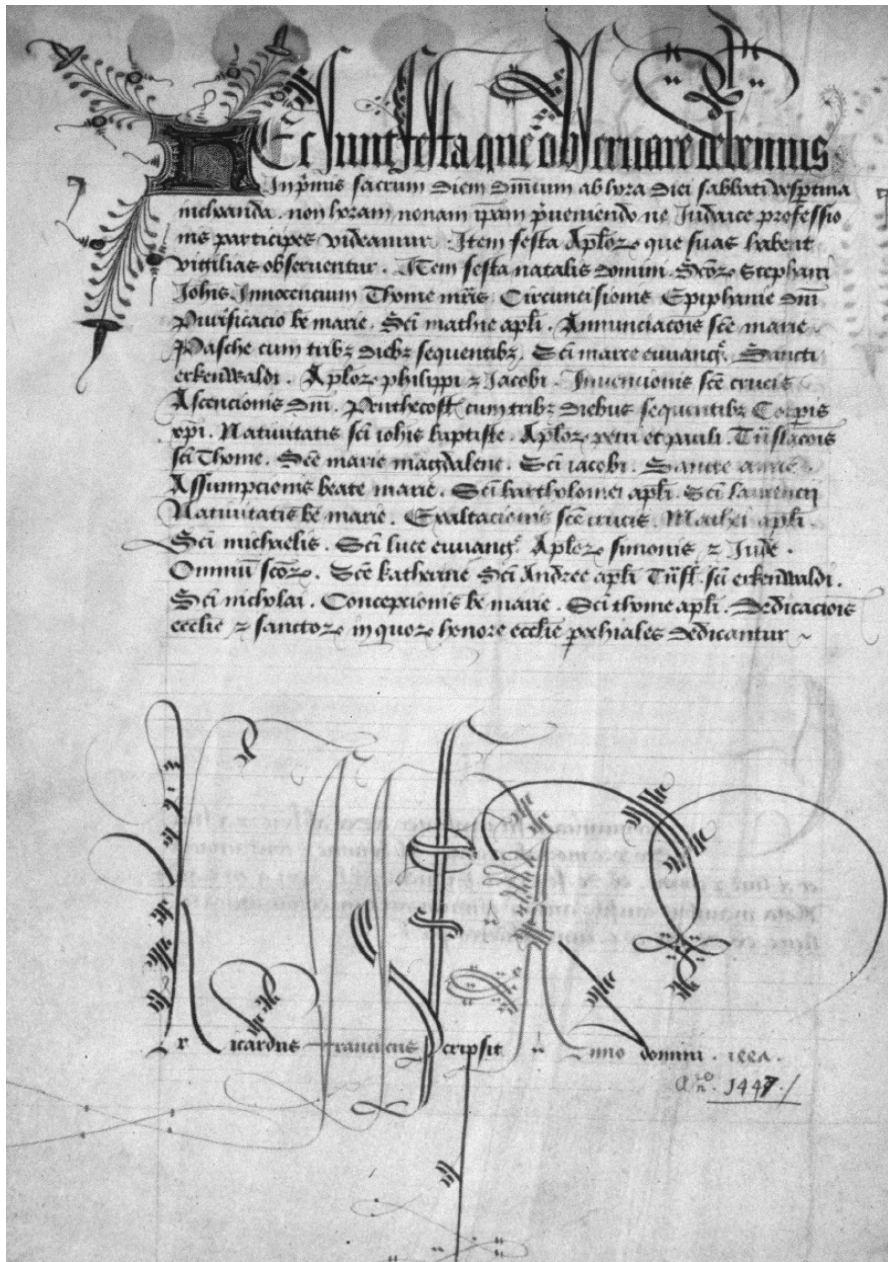 Hec sunt festa que observare debemus
Inp'mis sacrum diem dn̄icum ab hora diei sabbati vesp̄tina
inchoanda. non horam nonam ip̄am p'veniendo ne Judaice professio
nis participes videamur. Item festa Ap̄loꝝ que suas habent
vigilias observentur. Item festa natalis domini. Sc̄oꝝ Stephani
Joh̄is Innocencium Thome m̄ris. Circuncisionis Epiphanie dn̄i
Purificacio b̄e marie. Sc̄i mathie ap̄li. Annunciac̄ois sc̄e marie
Pasche cum tribȝ diebȝ sequentibȝ. Sc̄i marce euuangᵉ. Sancti
erkenwaldi. Ap̄loꝝ philippi ⁊ Jacobi. Invencionis sc̄e crucis
Ascencionis dn̄i. Penthecosт̄ cum tribȝ diebus sequentibȝ Corꝑis
xp̄i. Nativitatis sc̄i ioh̄is baptiste. Ap̄loꝝ petri et pauli. Tn̄slac̄ois
sc̄i Thome. Sc̄e marie magdalene. Sc̄i iacobi. Sancte anne.
Assumpcionis beate marie. Sc̄i bartholomei ap̄li. Sc̄i laurencij
Nativitatis b̄e marie. Exaltacionis sc̄e crucis. Mathei ap̄li.
Sc̄i michaelis. Sc̄i luce euuangᵉ. Ap̄loꝝ simonis ⁊ Jude.
Omniū sc̄oꝝ. Sc̄e katherine Sc̄i Andree ap̄li Tn̄sl̄. sc̄i erkenwaldi.
Sc̄i nicholai. Concepcionis b̄e marie. Sc̄i thome ap̄li. Dedicaciōis
ecclīe ⁊ sanctoꝝ in quoꝝ honore ecclīe ꝑochiales dedicantur
Ricardus Franciscus Scripsit Anno domini. 1447.
Aⁿo. 1447./